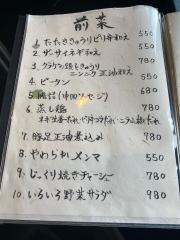 前菜
1. たたききゅうりピリ辛和え 550
2. ザーサイネギ和え 550
3. クラゲの頭ときゅうり
ニンニク正油和え 780
4. ピータン 550
5. 腸詰(中国ソーセージ) 680
6. 蒸し鶏
780
7. 豚足正油煮込み 780
8. やわらかメンマ 550
9. じっくり焼きチャーシュー 780
10. いろいろ野菜サラダ 980